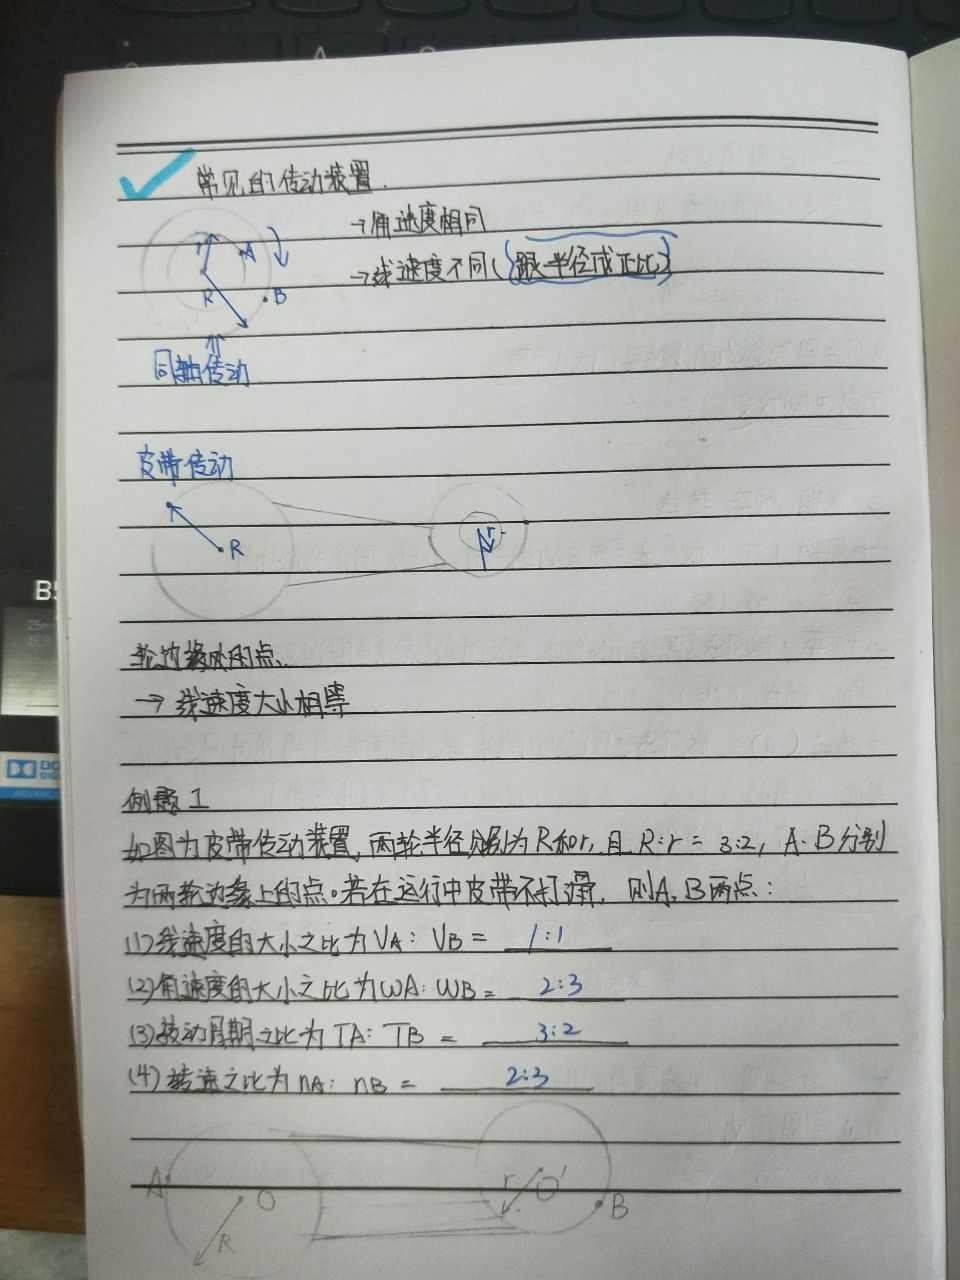 常见的传动装置.
→角速度相同
→线速度不同(跟半径成正比)
r
A
R
B
同轴传动
皮带传动
R
r
轮边缘处的点、
→ 线速度大小相等
例题1
如图为皮带传动装置,两轮半径分别为R和r,且R:r = 3:2, A.B分别
为两轮边缘上的点。若在运行中皮带不打滑, 则A、B两点:
(1)线速度的大小之比为VA: VB = 1:1
(2)角速度的大小之比为ωA: ωB = 2:3
(3)转动周期之比为TA: TB = 3:2
(4)转速之比为nA: nB = 2:3
A
O
R
r
O'
B